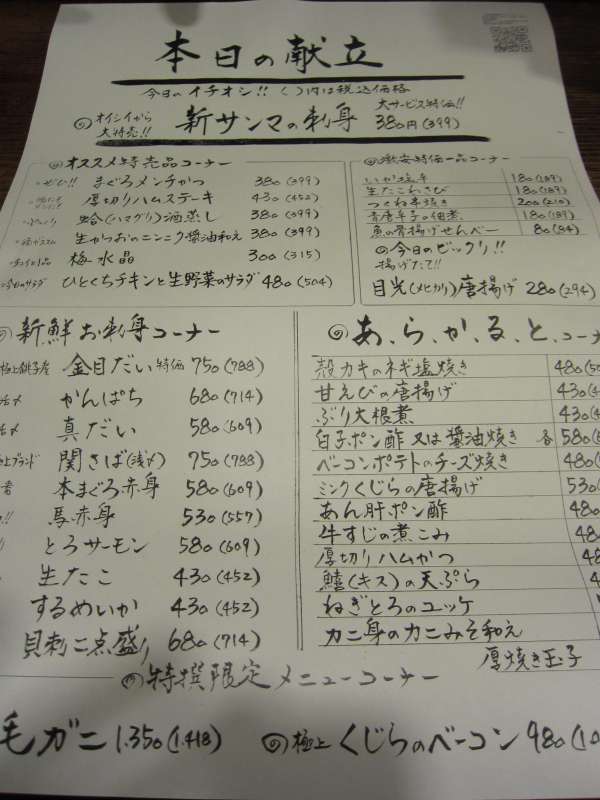 本日の献立
今日のイチオシ!! ( )内は税込価格
オイシイから
大特売!!
新サンマの刺身
大サービス特価!!
380円(399)
オススメ特売品コーナー
ぜひ!! まぐろメンチかつ 380(399)
厚切りハムステーキ 430(452)
蛤(ハマグリ)酒蒸し 380(399)
生かつおのニンニク醤油和え 380(399)
梅水晶 300(315)
今日のサラダ ひとくちチキンと生野菜のサラダ 480(504)
激安特価一品コーナー
いか塩辛 180(189)
生たこわさび 180(189)
つくね串焼き 200(210)
青唐辛子の佃煮 180(189)
魚の骨揚げせんべー 80(84)
今日のビックリ!!
揚げたて!!
目光(メヒカリ)唐揚げ 280(294)
新鮮お刺身コーナー
極上銚子産 金目だい 特価 750(788)
活〆 かんぱち 680(714)
活〆 真だい 580(609)
極上ブランド 関さば(浅〆) 750(788)
本まぐろ赤身 580(609)
馬赤身 530(557)
とろサーモン 580(609)
生たこ 430(452)
するめいか 430(452)
貝刺二点盛り 680(714)
あ、ら、か、る、と、コーナ
殻カキのネギ塩焼き 480(50
甘えびの唐揚げ 430(4
ぶり大根煮 430(4
白子ポン酢又は醤油焼き 各 580(6
ベーコンポテトのチーズ焼き 480(
ミンクくじらの唐揚げ 530(
あん肝ポン酢 480
牛すじの煮こみ 48
厚切りハムかつ
鱚(キス)の天ぷら
ねぎとろのユッケ
カニ身のカニみそ和え
厚焼き玉子
特撰限定メニューコーナー
毛ガニ 1.350(1.418)
極上くじらのベーコン 980(1.0